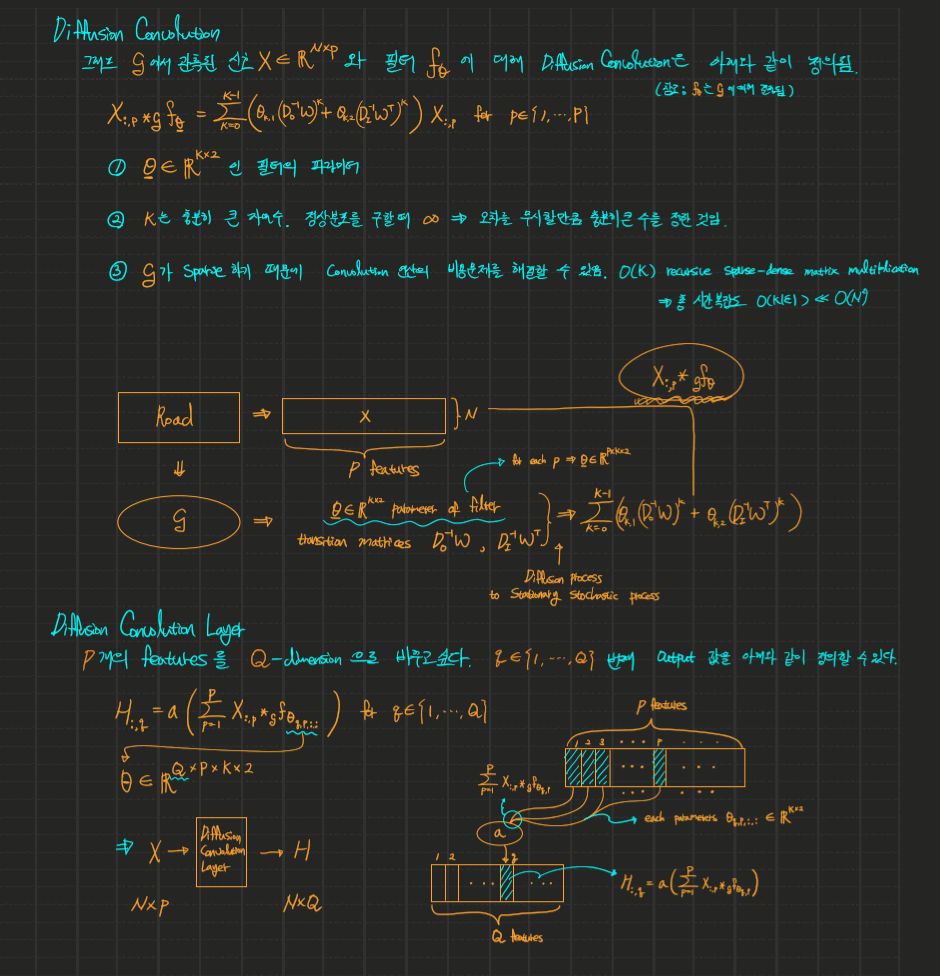 Diffusion Convolution
그래프 G에서 관측된 신호 X ∈ ℝ^{N×P} 와 필터 f_θ 에 대해 Diffusion Convolution은 아래와 같이 정의됨.
(참고: f_θ는 G에 의해 결정됨)
X_{:,p} *_G f_θ = Σ_{k=0}^{K-1} (θ_{k,1}(D_O^{-1}W)^k + θ_{k,2}(D_I^{-1}W^T)^k) X_{:,p} for p∈{1,⋯,P}
① θ ∈ ℝ^{K×2} 인 필터의 파라미터
② K는 충분히 큰 자연수. 정상분포를 구할때 ∞ ⇒ 오차를 무시할만큼 충분히 큰 수를 정한 것임.
③ G가 Sparse 하기 때문에 Convolution 연산의 비용문제를 해결할 수 있음. O(K) recursive sparse-dense matrix multiplication
⇒ 총 시간복잡도 O(K|E|) ≪ O(N²)
X_{:,p} *_G f_θ
Road ⇒ X } N
P features
⇓
for each p ⇒ θ∈ℝ^{P×K×2}
G ⇒ θ∈ℝ^{K×2} parameter of filter
transition matrices D_O^{-1}W , D_I^{-1}W^T } ⇒ Σ_{k=0}^{K-1} (θ_{k,1}(D_O^{-1}W)^k + θ_{k,2}(D_I^{-1}W^T)^k)
Diffusion process
to Stationary Stochastic process
Diffusion Convolution Layer
P개의 features를 Q-dimension 으로 바꾸고싶다. q∈{1,⋯,Q} 번째 output 값을 아래와 같이 정의할 수 있다.
H_{:,q} = a(Σ_{p=1}^{P} X_{:,p} *_G f_{θ_{q,p,:,:}}) for q∈{1,⋯,Q}
θ ∈ ℝ^{Q×P×K×2}
P features
1 2 3 ⋯ p ⋯
Σ_{p=1}^{P} X_{:,p} *_G f_{θ_{q,p}}
each parameters θ_{q,p,:,:} ∈ ℝ^{K×2}
a
⇒ X → Diffusion Convolution Layer → H
N×P N×Q
1 2 ⋯ q ⋯
H_{:,q} = a(Σ_{p=1}^{P} X_{:,p} *_G f_{θ_{q,p}})
Q features